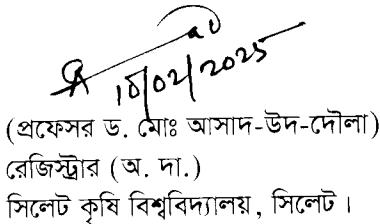 10/02/2025
(প্রফেসর ড. মোঃ আসাদ-উদ-দৌলা)
রেজিস্ট্রার (অ. দা.)
সিলেট কৃষি বিশ্ববিদ্যালয়, সিলেট।